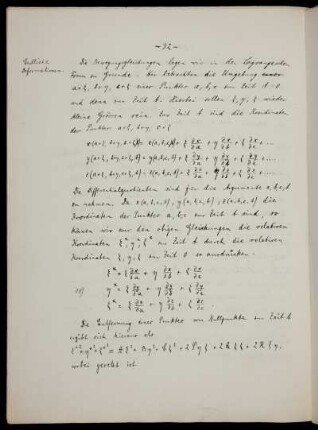 - 32 -
Endliche
Deformationen.
Die Bewegungsgleichungen legen wir in der Lagrangeschen
Form zu Grunde. Wir betrachten die Umgebung
a+ξ, b+η, c+ζ eines Punktes a, b, c zur Zeit t=0
und dann zur Zeit t. Hierbei sollen ξ, η, ζ wieder
kleine Grössen sein. Zur Zeit t sind die Koordinaten
der Punkte a+ξ, b+η, c+ζ
x(a+ξ, b+η, c+ζ, t) = x(a, b, c, t) + ξ ∂x/∂a + η ∂x/∂b + ζ ∂x/∂c + ...
y(a+ξ, b+η, c+ζ, t) = y(a, b, c, t) + ξ ∂y/∂a + η ∂y/∂b + ζ ∂y/∂c + ...
z(a+ξ, b+η, c+ζ, t) = z(a, b, c, t) + ξ ∂z/∂a + η ∂z/∂b + ζ ∂z/∂c + ...
Die Differentialquotienten sind für die Argumente a, b, c, t
zu nehmen. Da x(a, b, c, t), y(a, b, c, t), z(a, b, c, t) die
Koordinaten des Punktes a, b, c zur Zeit t sind, so
können wir aus den obigen Gleichungen die relativen
Koordinaten ξ*, η*, ζ* zur Zeit t durch die relativen
Koordinaten ξ, η, ζ zur Zeit 0 so ausdrücken:
ξ* = ξ ∂x/∂a + η ∂x/∂b + ζ ∂x/∂c
η* = ξ ∂y/∂a + η ∂y/∂b + ζ ∂y/∂c
ζ* = ξ ∂z/∂a + η ∂z/∂b + ζ ∂z/∂c
Die Entfernung eines Punktes vom Nullpunkte zur Zeit t
ergibt sich hieraus als
ξ*²+η*²+ζ*² = Aξ² + Bη² + Cζ² + 2Pηζ + 2Qζξ + 2Rξη,
wobei gesetzt ist